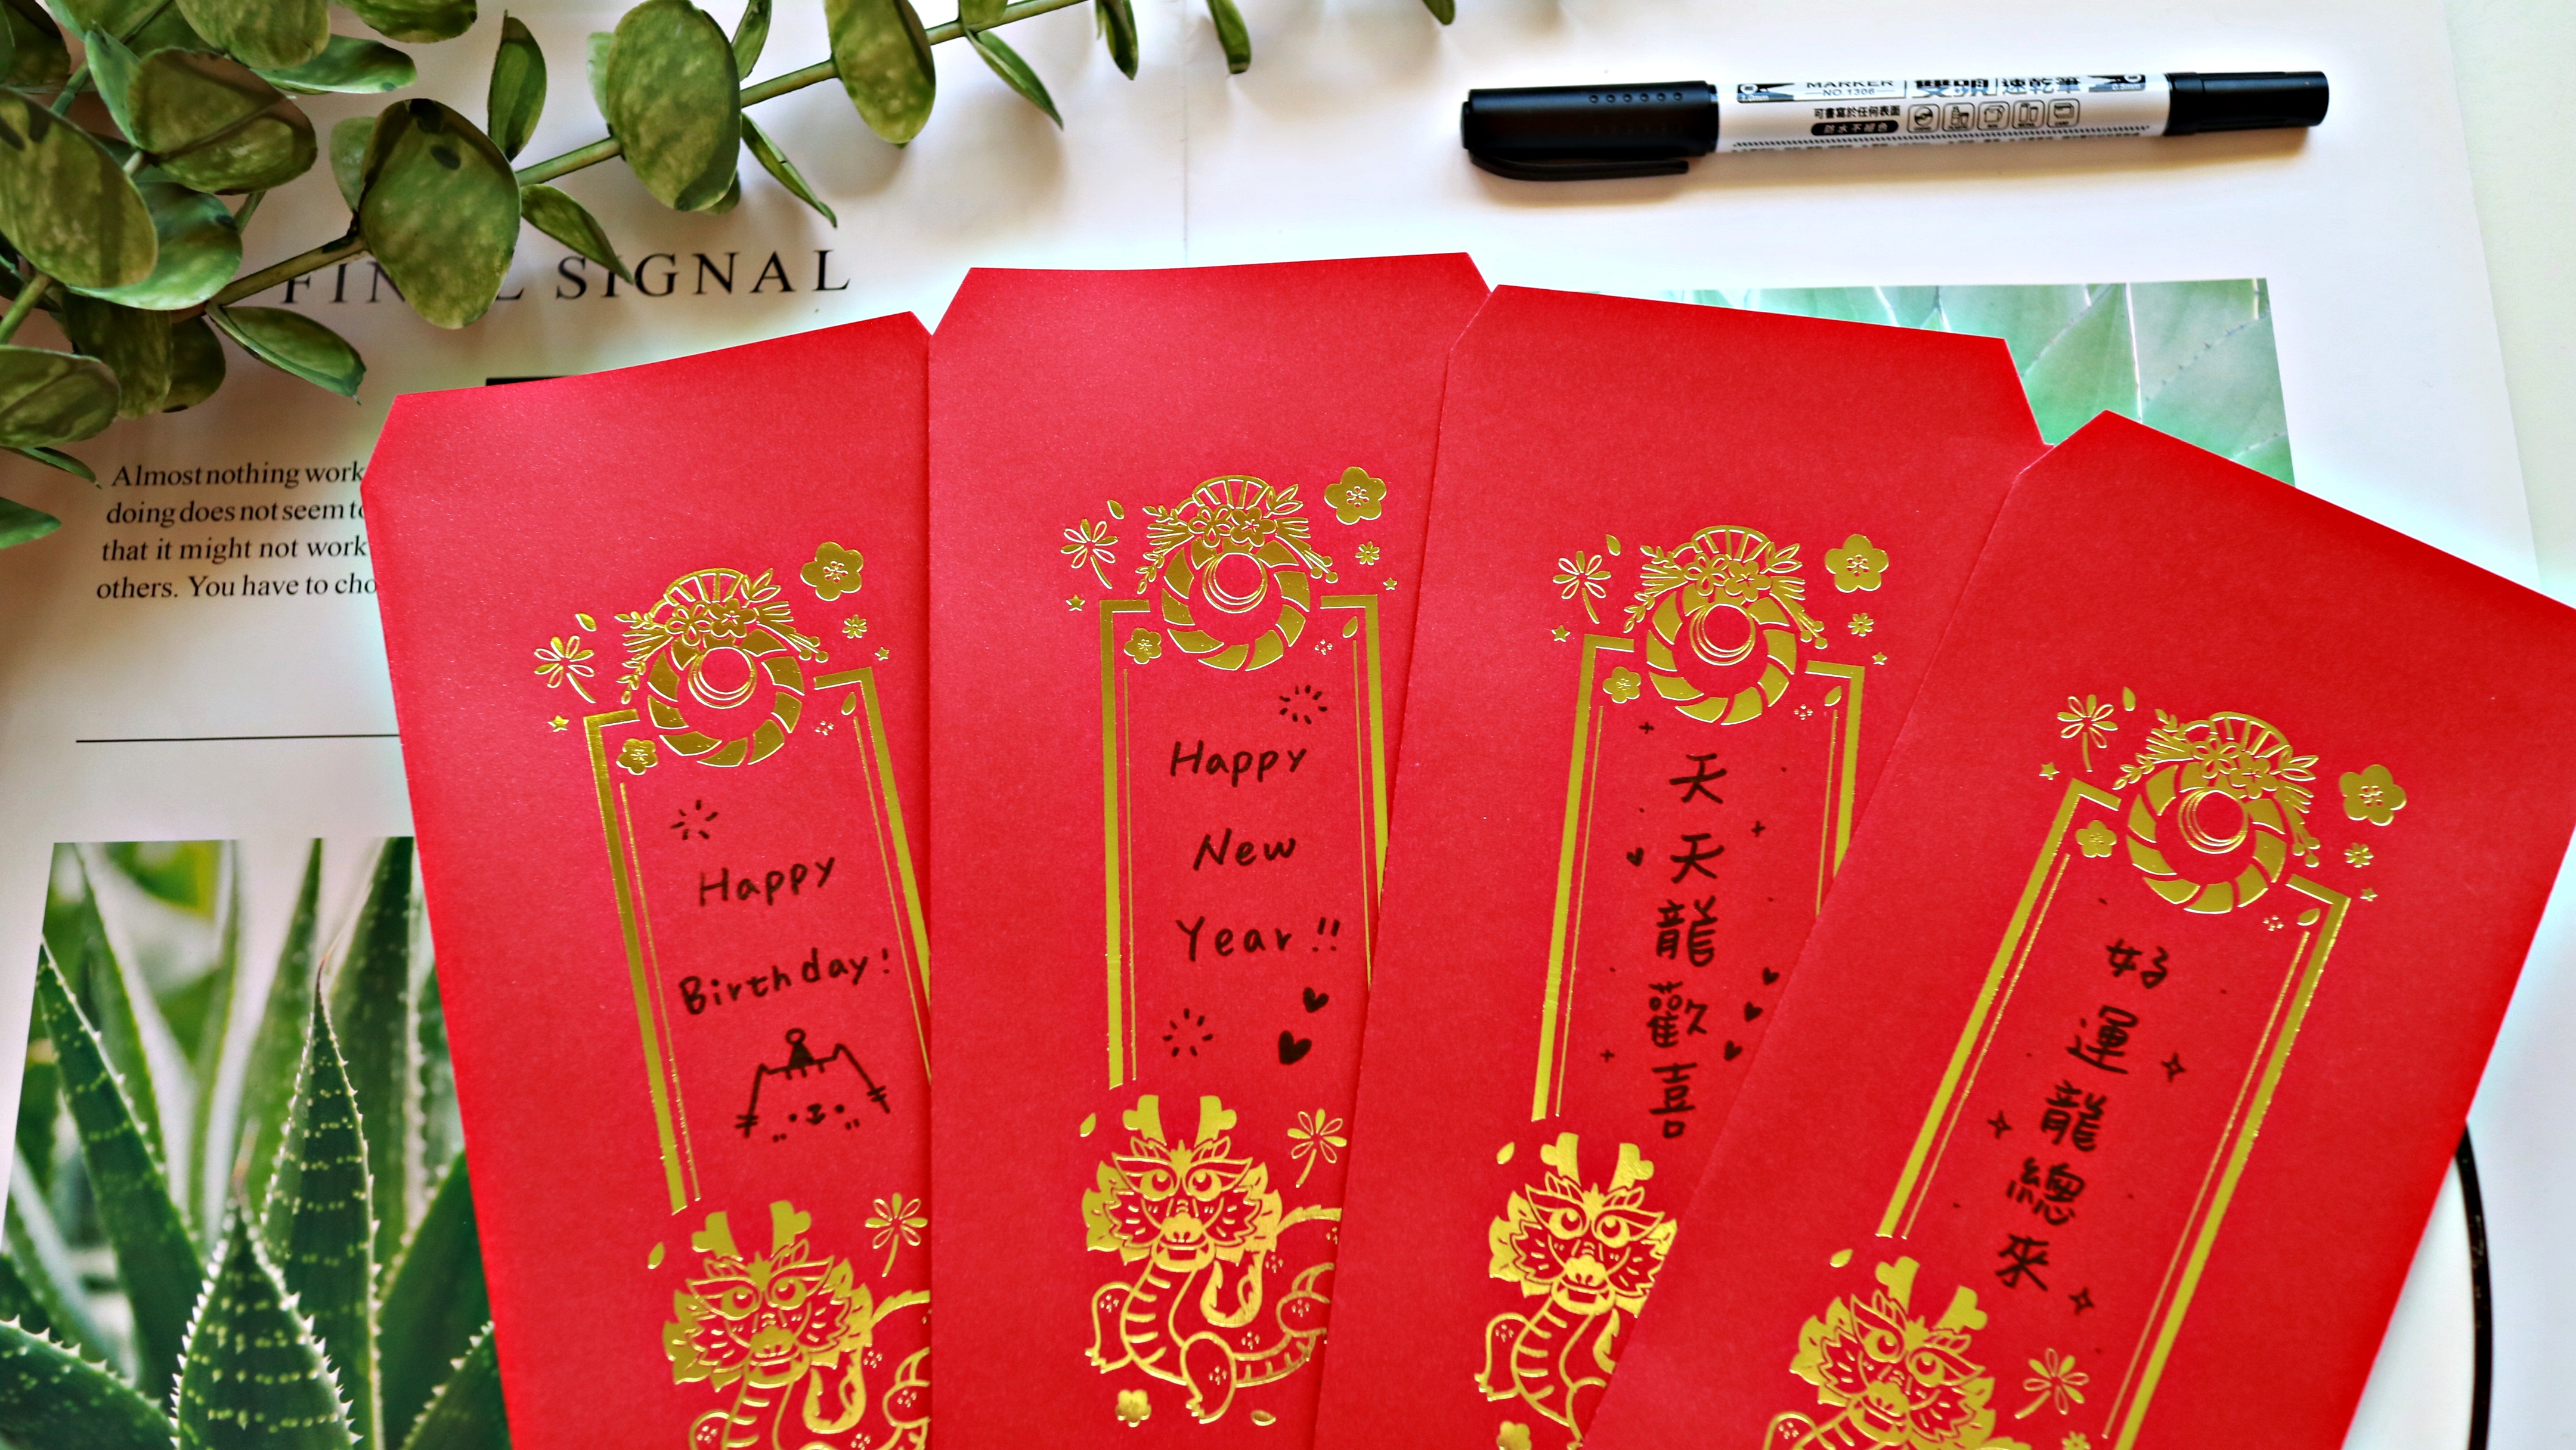 MARKER
NO.1306
雙頭 速乾筆
可書寫於任何表面
防水不褪色
0.8mm
SIGNAL
Almost nothing work
doing does not seem to
that it might not work
others. You have to cho
Happy
Birthday!
Happy
New
Year!!
天
天
龍
歡
喜
好
運
龍
總
來